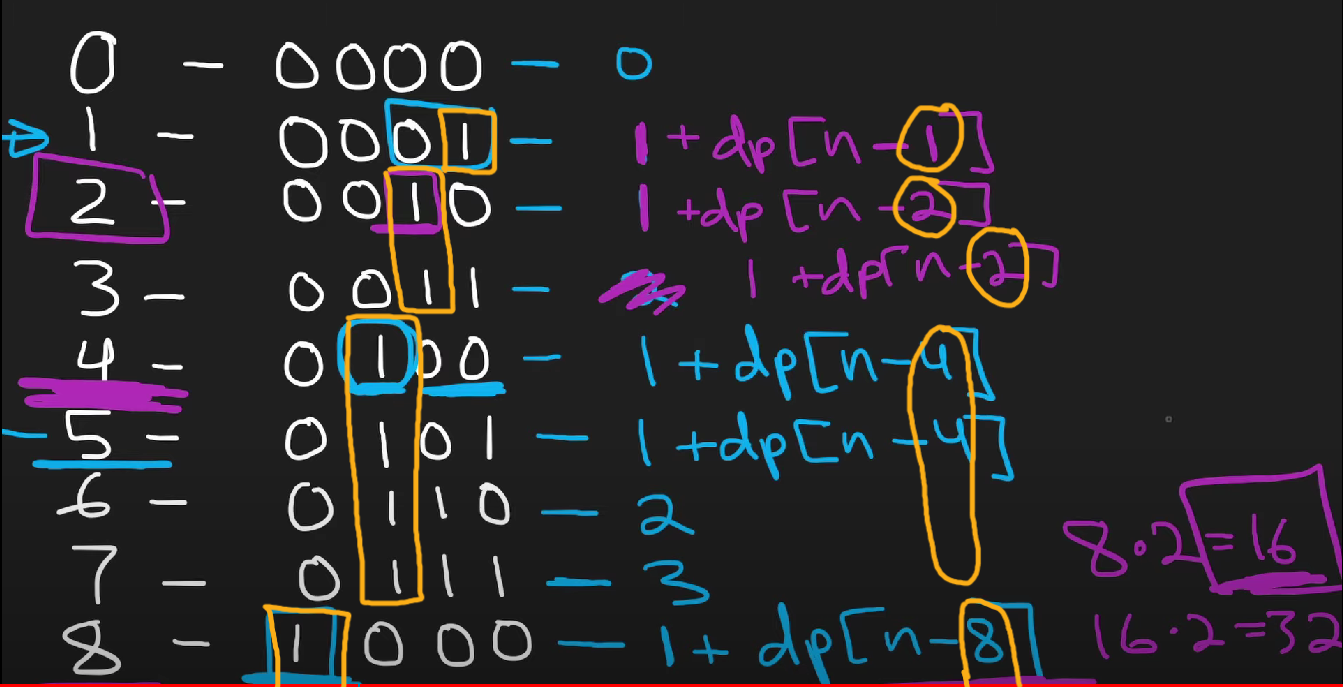 0 - 0000 - 0
1 - 0001 - 1 + dp[n-1]
2 - 0010 - 1 + dp[n-2]
3 - 0011 - 1 + dp[n-2]
4 - 0100 - 1 + dp[n-4]
5 - 0101 - 1 + dp[n-4]
6 - 0110 - 2
7 - 0111 - 3
8·2 = 16
8 - 1000 - 1 + dp[n-8]
16·2=32